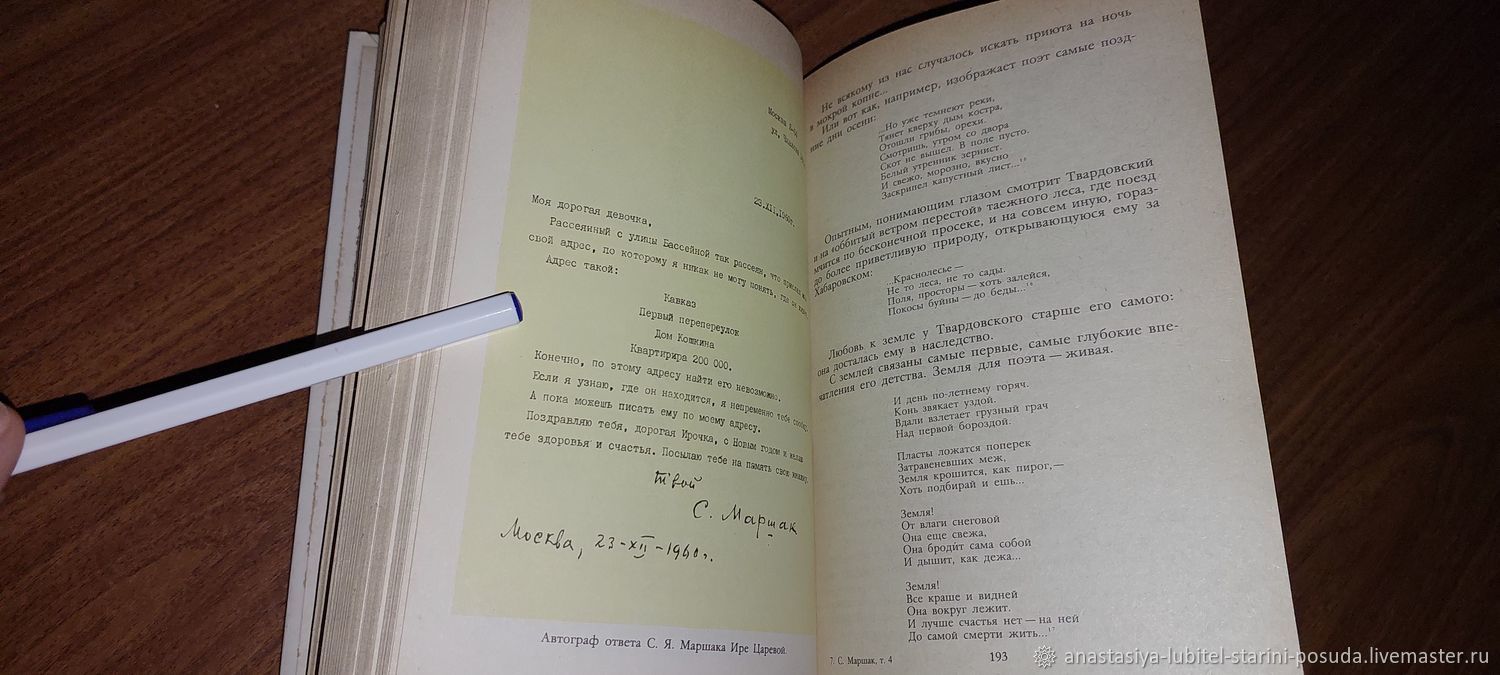 Москва
ул.
23.XII.1960г.
Моя дорогая девочка,
Рассеянный с улицы Бассейной так рассеян, что прислал
свой адрес, по которому я никак не могу понять, где он
Адрес такой:
Кавказ
Первый перепереулок
Дом Кошкина
Квартирира 200 000.
Конечно, по этому адресу найти его невозможно.
Если я узнаю, где он находится, я непременно тебе сообщ
А пока можешь писать ему по моему адресу.
Поздравляю тебя, дорогая Ирочка, с Новым годом и желаю
тебе здоровья и счастья. Посылаю тебе на память свою книжку.
Твой
С. Маршак
Москва, 23-XII-1960г.
Автограф ответа С. Я. Маршака Ире Царевой.
Не всякому из нас случалось искать приюта на ночь
в мокрой копне...
Или вот как, например, изображает поэт самые позд-
ние дни осени:
...Но уже темнеют реки,
Тянет кверху дым костра,
Отошли грибы, орехи.
Смотришь, утром со двора
Скот не вышел. В поле пусто.
Белый утренник зернист.
И свежо, морозно, вкусно
Заскрипел капустный лист...¹⁵
Опытным, понимающим глазом смотрит Твардовский
и на «оббитый ветром перестой» таежного леса, где поезд
мчится по бесконечной просеке, и на совсем иную, гораз-
до более приветливую природу, открывающуюся ему за
Хабаровском:
...Краснолесье —
Не то леса, не то сады.
Поля, просторы — хоть залейся,
Покосы буйны — до беды...¹⁶
Любовь к земле у Твардовского старше его самого:
она досталась ему в наследство.
С землей связаны самые первые, самые глубокие впе-
чатления его детства. Земля для поэта — живая.
И день по-летнему горяч.
Конь звякает уздой.
Вдали взлетает грузный грач
Над первой бороздой.
Пласты ложатся поперек
Затравеневших меж,
Земля крошится, как пирог,—
Хоть подбирай и ешь...
Земля!
От влаги снеговой
Она еще свежа,
Она бродит сама собой
И дышит, как дежа...
Земля!
Все краше и видней
Она вокруг лежит.
И лучше счастья нет — на ней
До самой смерти жить...¹⁷
7. С. Маршак, т. 4
193
anastasiya-lubitel-starini-posuda.livemaster.ru